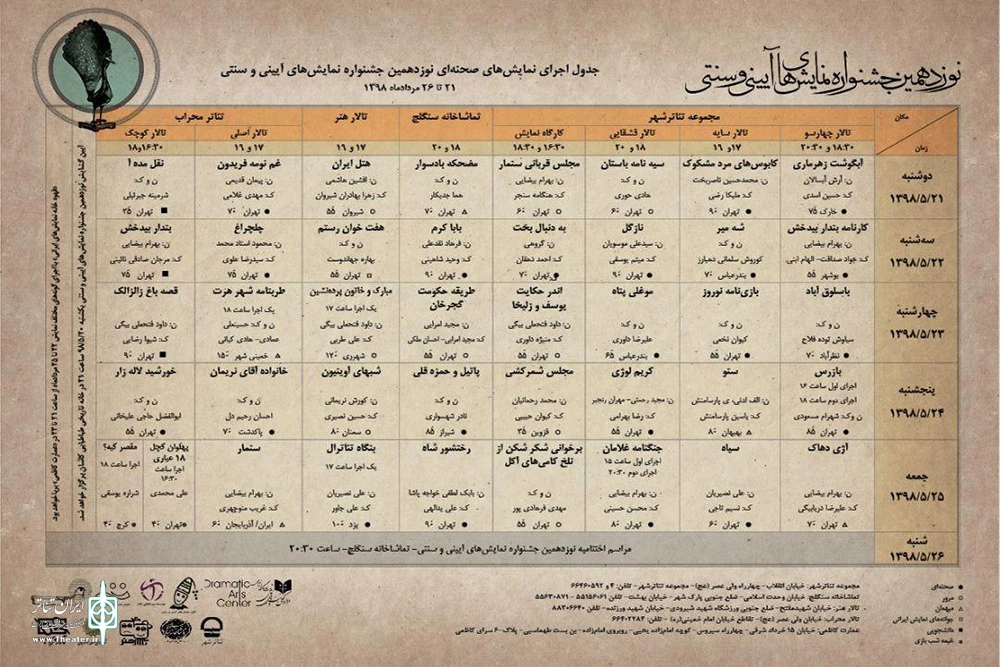 نوزدهمین جشنواره نمایش‌های آیینی و سنتی
جدول اجرای نمایش‌های صحنه‌ای نوزدهمین جشنواره نمایش‌های آیینی و سنتی
۲۱ تا ۲۶ مردادماه ۱۳۹۸
مکان
زمان
مجموعه تئاترشهر
تماشاخانه سنگلج
تالار هنر
تئاتر محراب
تالار چهارسو
تالار سایه
تالار قشقایی
کارگاه نمایش
تالار اصلی
تالار کوچک
۱۸:۳۰ و ۲۰:۳۰
۱۷ و ۱۹
۱۸ و ۲۰
۱۶:۳۰ و ۱۸:۳۰
۱۸ و ۲۰
۱۷ و ۱۹
۱۷ و ۱۹
۱۶:۳۰و۱۸
دوشنبه
۱۳۹۸/۵/۲۱
آبگوشت زهرماری
ن: آرش آبسالان
ک: حسین اسدی
خارک ۷۵
کابوس‌های مرد مشکوک
ن: محمدحسین ناصربخت
ک: ملیکا رضی
تهران ۹۰
سیه نامه باستان
ن و ک:
هادی حوری
تهران ۶۰
مجلس قربانی سنمار
ن: بهرام بیضایی
ک: هنگامه سنجر
تهران ۶۰
مضحکه بادسوار
ن و ک:
هما جدیکار
تهران ۷۰
هتل ایران
ن: افشین هاشمی
ک: زهرا بهادران شیروان
شیروان ۵۵
غم نومه فریدون
ن: پیمان قدیمی
ک: مهدی غلامی
تهران ۷۰
نقل مده آ
ن و ک:
شرمینه جبرئیلی
تهران ۳۵
سه‌شنبه
۱۳۹۸/۵/۲۲
کارنامه بندار بیدخش
ن: بهرام بیضایی
ک: جواد صداقت- الهام ابنی
بوشهر ۵۵
شه میر
ن و ک:
کوروش سلمانی دهبارز
بندرعباس ۷۰
نازگل
ن: سیدعلی موسویان
ک: میثم یوسفی
تهران ۹۰
به دنبال بخت
ن: گروهی
ک: احمد دهقان
تهران ۷۰
بابا کرم
ن: فرهاد نقدعلی
ک: وحید شاهینی
تهران ۹۰
هفت خوان رستم
ن و ک:
بهاره جهاندوست
تهران ۵۵
چلچراغ
ن: محمود استاد محمد
ک: سیدرضا علوی
تهران ۷۵
بندار بیدخش
ن: بهرام بیضایی
ک: مرجان صادقی نائینی
تهران ۷۵
چهارشنبه
۱۳۹۸/۵/۲۳
باسلوق آباد
ن و ک:
سیاوش توده فلاح
نظرآباد ۷۰
بازی‌نامه نوروز
ن و ک:
کیوان نخعی
تهران ۵۵
موغلی پتاه
ن و ک:
علیرضا داوری
بندرعباس ۶۵
اندر حکایت
یوسف و زلیخا
ن: داود فتحعلی بیگی
ک: منیژه داوری
تهران ۵۵
طریقه حکومت
گجرخان
ن: مجید امرایی
ک: مجید امرایی- احسان ملکی
تهران ۵۵
مبارک و خاتون پرده‌نشین
یک اجرا ساعت ۱۷
ن: داود فتحعلی بیگی
ک: علی طربی
شهرری ۱۲۰
طربنامه شهر هزت
یک اجرا ساعت ۱۸
ن و ک: حسینعلی
صمادی- هادی کیانی
خمینی شهر ۱۵۰
قصه باغ زالزالک
ن: داود فتحعلی بیگی
ک: شیوا رضایی
تهران ۹۰
پنجشنبه
۱۳۹۸/۵/۲۴
بازرس
اجرای اول ساعت ۱۶
اجرای دوم ساعت ۱۸
ن وک: شهرام مسعودی
تهران ۸۵
سنو
ن: الف لدنی، ی پارسامنش
ک: یاسین پارسامنش
بهبهان ۸۰
کریم لوژی
ن: مجید رحمتی- مهران رنجبر
ک: رضا بهرامی
تهران ۵۵
مجلس شمرکشی
ن: محمد رحمانیان
ک: کیوان حبیبی
قزوین ۳۵
پاتیل و حمزه قلی
ن و ک:
نادر شهسواری
شیراز ۸۵
شبهای آوینیون
ن: کورش نریمانی
ک: حسین نصیری
سمنان ۸۰
خانواده آقای نریمان
ن و ک:
احسان رحیم دل
پاکدشت ۷۰
خورشید لاله زار
ن و ک:
ابوالفضل حاجی علیخانی
تهران ۵۵
جمعه
۱۳۹۸/۵/۲۵
آژی دهاک
ن: بهرام بیضایی
ک: علیرضا دریابیگی
تهران ۷۰
سیاه
ن: علی نصیریان
ک: نسیم تاجی
تهران ۶۰
جنگنامه غلامان
اجرای اول ساعت ۱۵
اجرای دوم ۲۰:۳۰
ن: بهرام بیضایی
ک: محسن حسینی
تهران ۸۰
برخوانی شکر شکن از
تلخ کامی‌های آکل
ن و ک:
مهدی فرهادی پور
تهران ۵۵
رختشور شاه
ن: بابک لطفی خواجه پاشا
ک: علی یدالهی
تهران ۹۰
بنگاه تئاترال
یک اجرا ساعت ۱۷
ن: علی نصیریان
ک: علی جاور
یزد ۱۰۰
سنمار
ن: بهرام بیضایی
ک: غریب منوچهری
ایران/ آذربایجان ۶۰
پهلوان کچل
۱۸ عیاری
اجرا ساعت
۱۶:۳۰
علی محمدی
تهران ۴۰
مقصر کیه؟
اجرا ساعت ۱۸
شراره یوسفی
کرج ۴۰
شنبه
۱۳۹۸/۵/۲۶
مراسم اختتامیه نوزدهمین جشنواره نمایش‌های آیینی و سنتی- تماشاخانه سنگلج- ساعت ۲۰:۳۰
آیین گشایش نوزدهمین جشنواره نمایش‌های آیینی و سنتی یکشنبه ۹۸/۵/۲۰ ساعت ۲۱ در خانه تاریخی طباطبایی کاشان برگزار خواهد شد.
صحنه‌ای
مرور
میهمان
جوانه‌های نمایش ایرانی
دانشجویی
خیمه شب بازی
مجموعه تئاترشهر: خیابان انقلاب- چهارراه ولی عصر (عج)- مجموعه تئاترشهر- تلفن: ۴ و ۶۶۴۶۰۵۹۲
تماشاخانه سنگلج: خیابان وحدت اسلامی- ضلع جنوبی پارک شهر- خیابان بهشت- تلفن: ۵۵۱۵۶۰۶۱ - ۵۵۶۳۰۸۷۱
تالار هنر: خیابان شهیدمفتح- ضلع جنوبی ورزشگاه شهید شیرودی- خیابان شهید ورزنده- تلفن: ۸۸۳۰۶۶۴۰
تالار محراب: خیابان ولی عصر (عج)- تقاطع خیابان امام خمینی(ره)- تلفن: ۶۶۴۰۲۲۸۴
عمارت کاظمی: خیابان ۱۵ خرداد شرقی- چهارراه سیروس- کوچه امام‌زاده یحیی- روبروی امام‌زاده- بن بست طهماسبی- پلاک۶- سرای کاظمی
Dramatic
Arts
Center
ایران تئاتر
www.Theater.ir